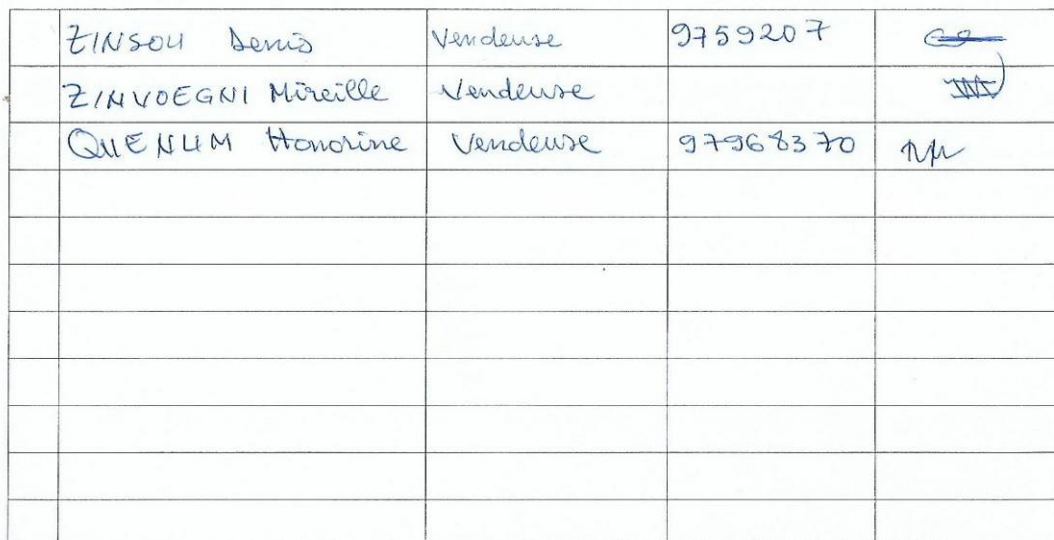 ZINSOU Denis Vendeuse 9759207
ZINVOEGNI Mireille Vendeuse
QUENUM Honorine Vendeuse 97968370